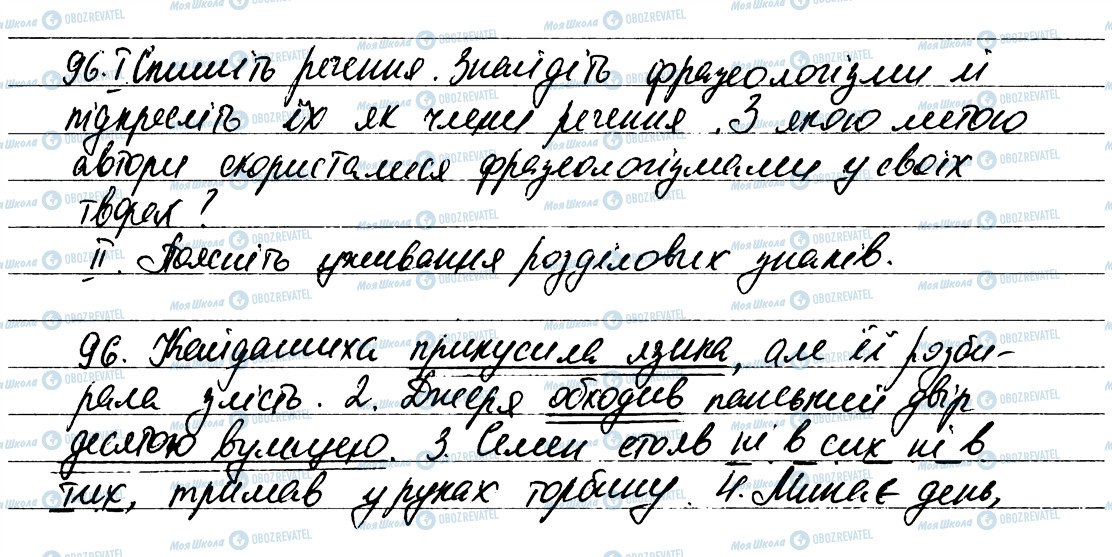 96. І Спишіть речення. Знайдіть фразеологізми й
підкресліть їх як члени речення. З якою метою
автори скористалися фразеологізмами у своїх
творах?
ІІ. Поясніть уживання розділових знаків.
96. Кайдашиха прикусила язика, але її розби-
рала злість. 2. Джеря обходив панський двір
десятою вулицею. 3 Семен стояв ні в сих ні в
тих, тримав у руках торбину. 4. Минає день,